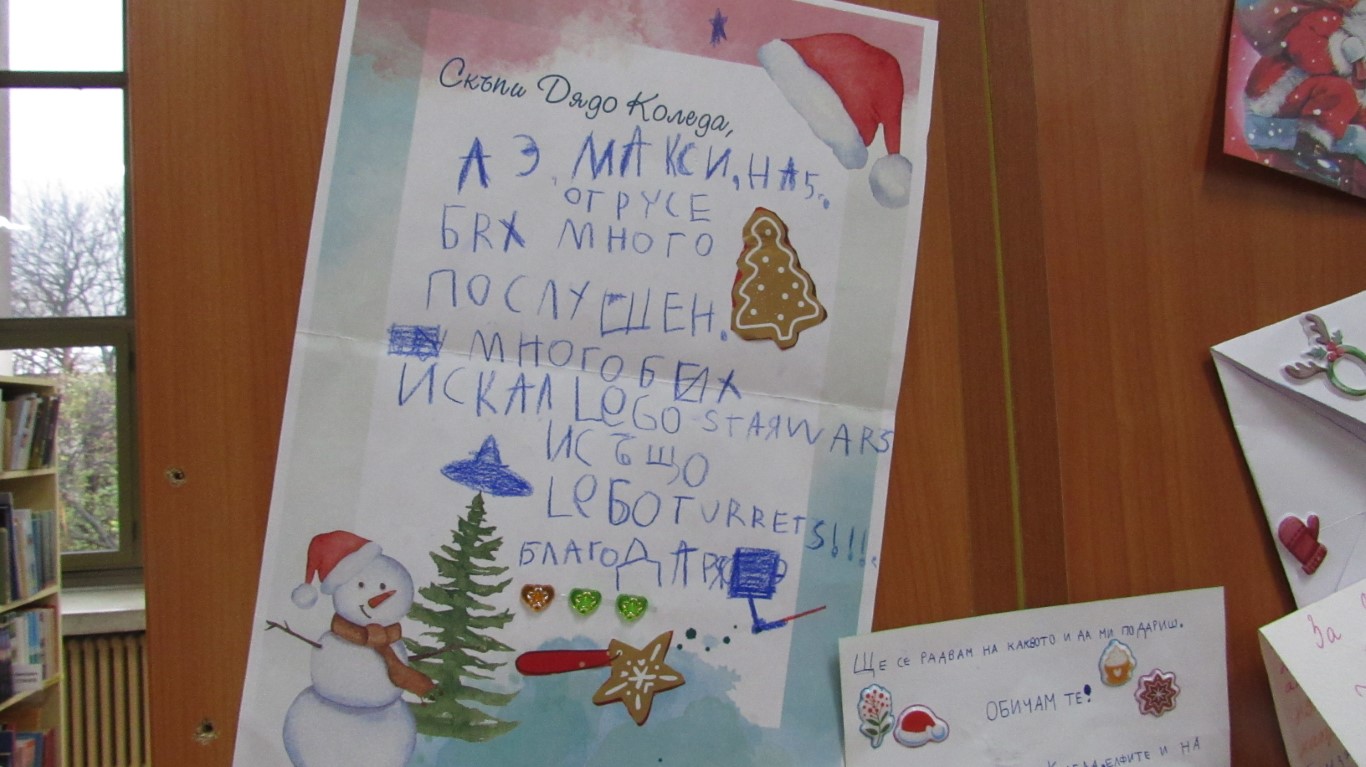 Скъпи Дядо Коледа,
АЗ, МАКСИ, НА 5.
ОТ РУСЕ
БЯХ МНОГО
ПОСЛУШЕН.
МНОГО БИХ
ИСКАЛ LeGO STAЯWARS
И СЪЩО
LeGO TURRETS!!!
БЛАГОДАРЯ
ЩЕ СЕ РАДВАМ НА КАКВОТО И ДА МИ ПОДАРИШ.
ОБИЧАМ ТЕ!
ЕЛФИТЕ И НА
За